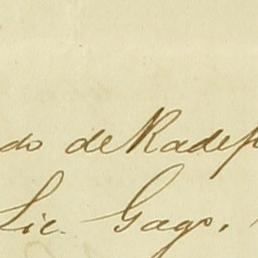 do de Radep
Lic. Gago.